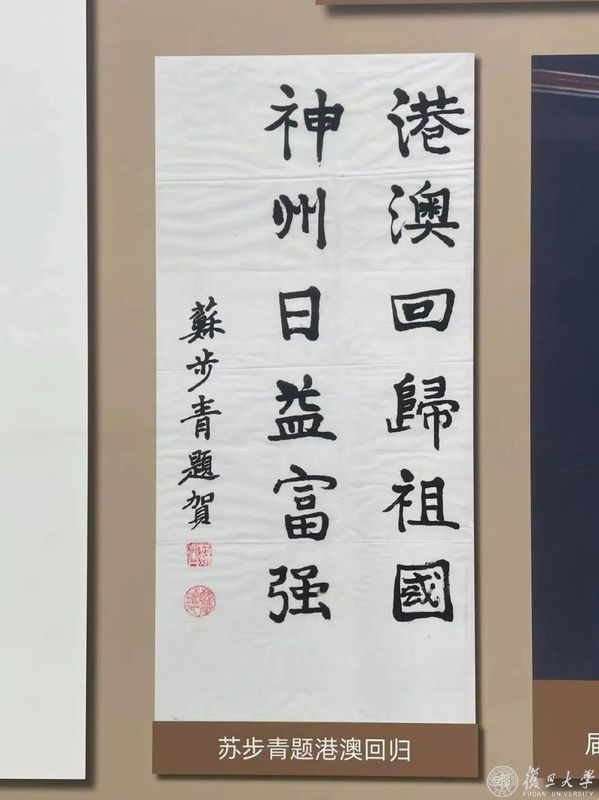 港澳回歸祖國
神州日益富强
蘇步青題賀
苏步青题港澳回归
届
復旦大學
FUDAN UNIVERSITY